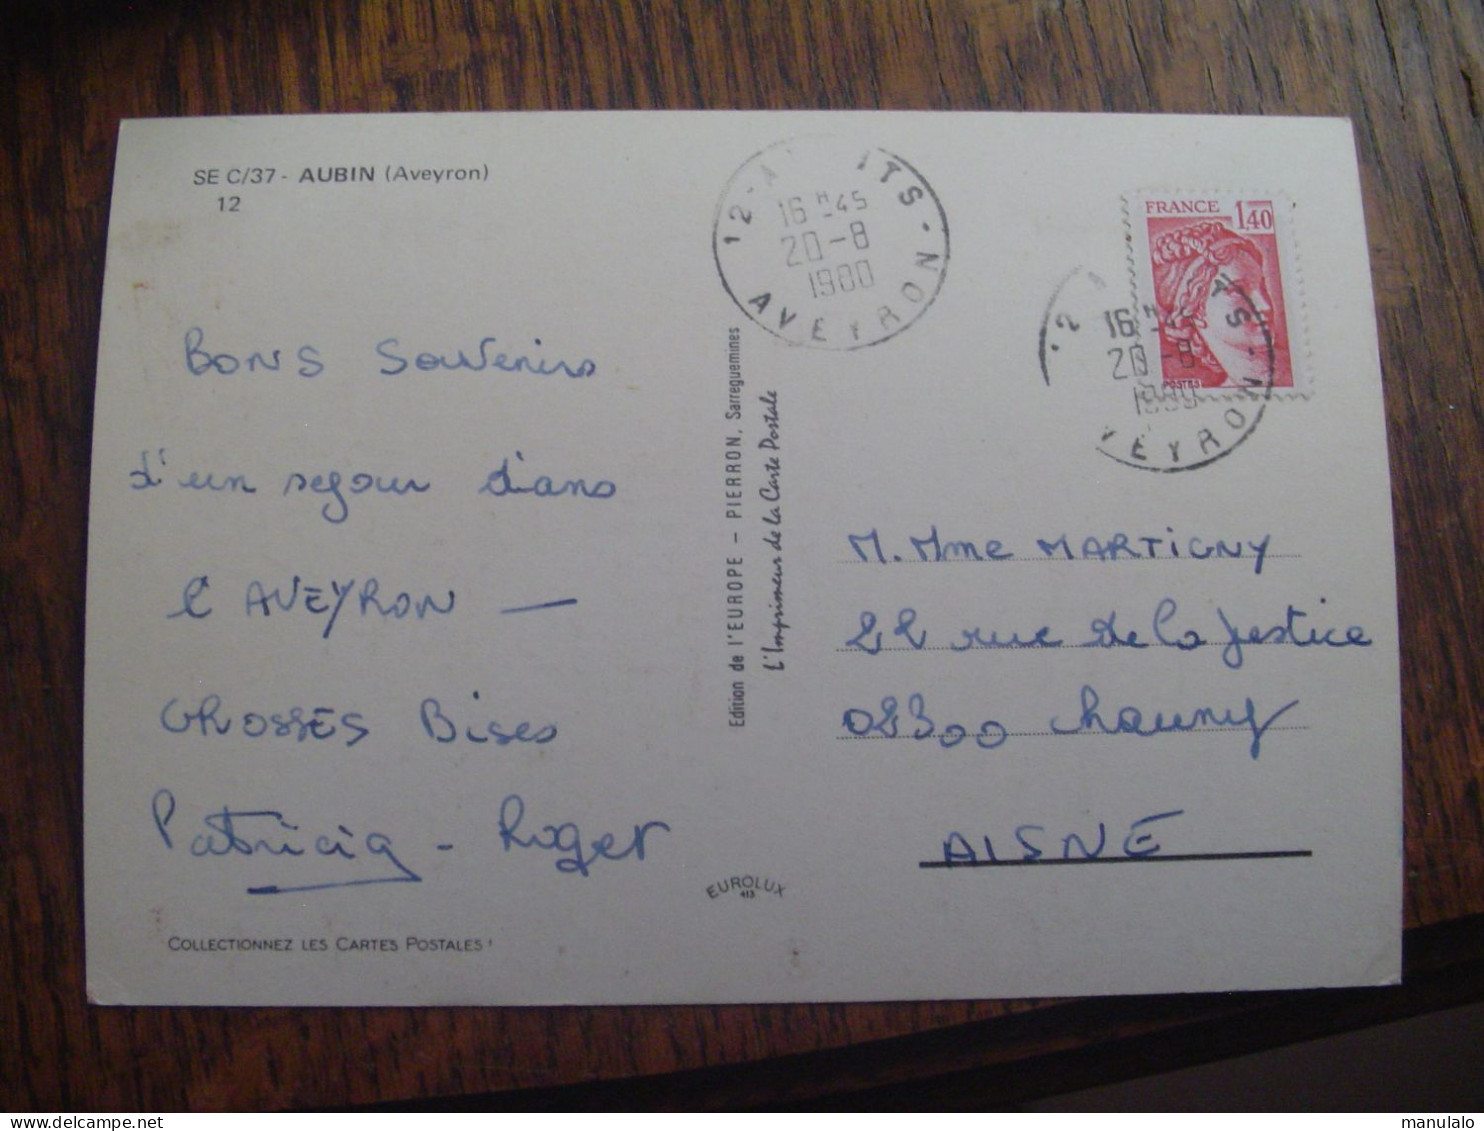 SE C/37 - AUBIN (Aveyron)
12
Bons Souvenirs
d'un sejour dans
l'AVEYRON —
GROSSES Bises
Patricia - Roger
COLLECTIONNEZ LES CARTES POSTALES !
Edition de l'EUROPE - PIERRON, Sarreguemines
L'Imprimeur de la Carte Postale
EUROLUX
413
12 - A ITS - AVEYRON
16 H 45
20-8
1980
FRANCE 1,40
POSTES
16 H 45
20-8
1980
M. Mme MARTIGNY
22 rue de la Justice
02300 Chauny
AISNE
manulalo